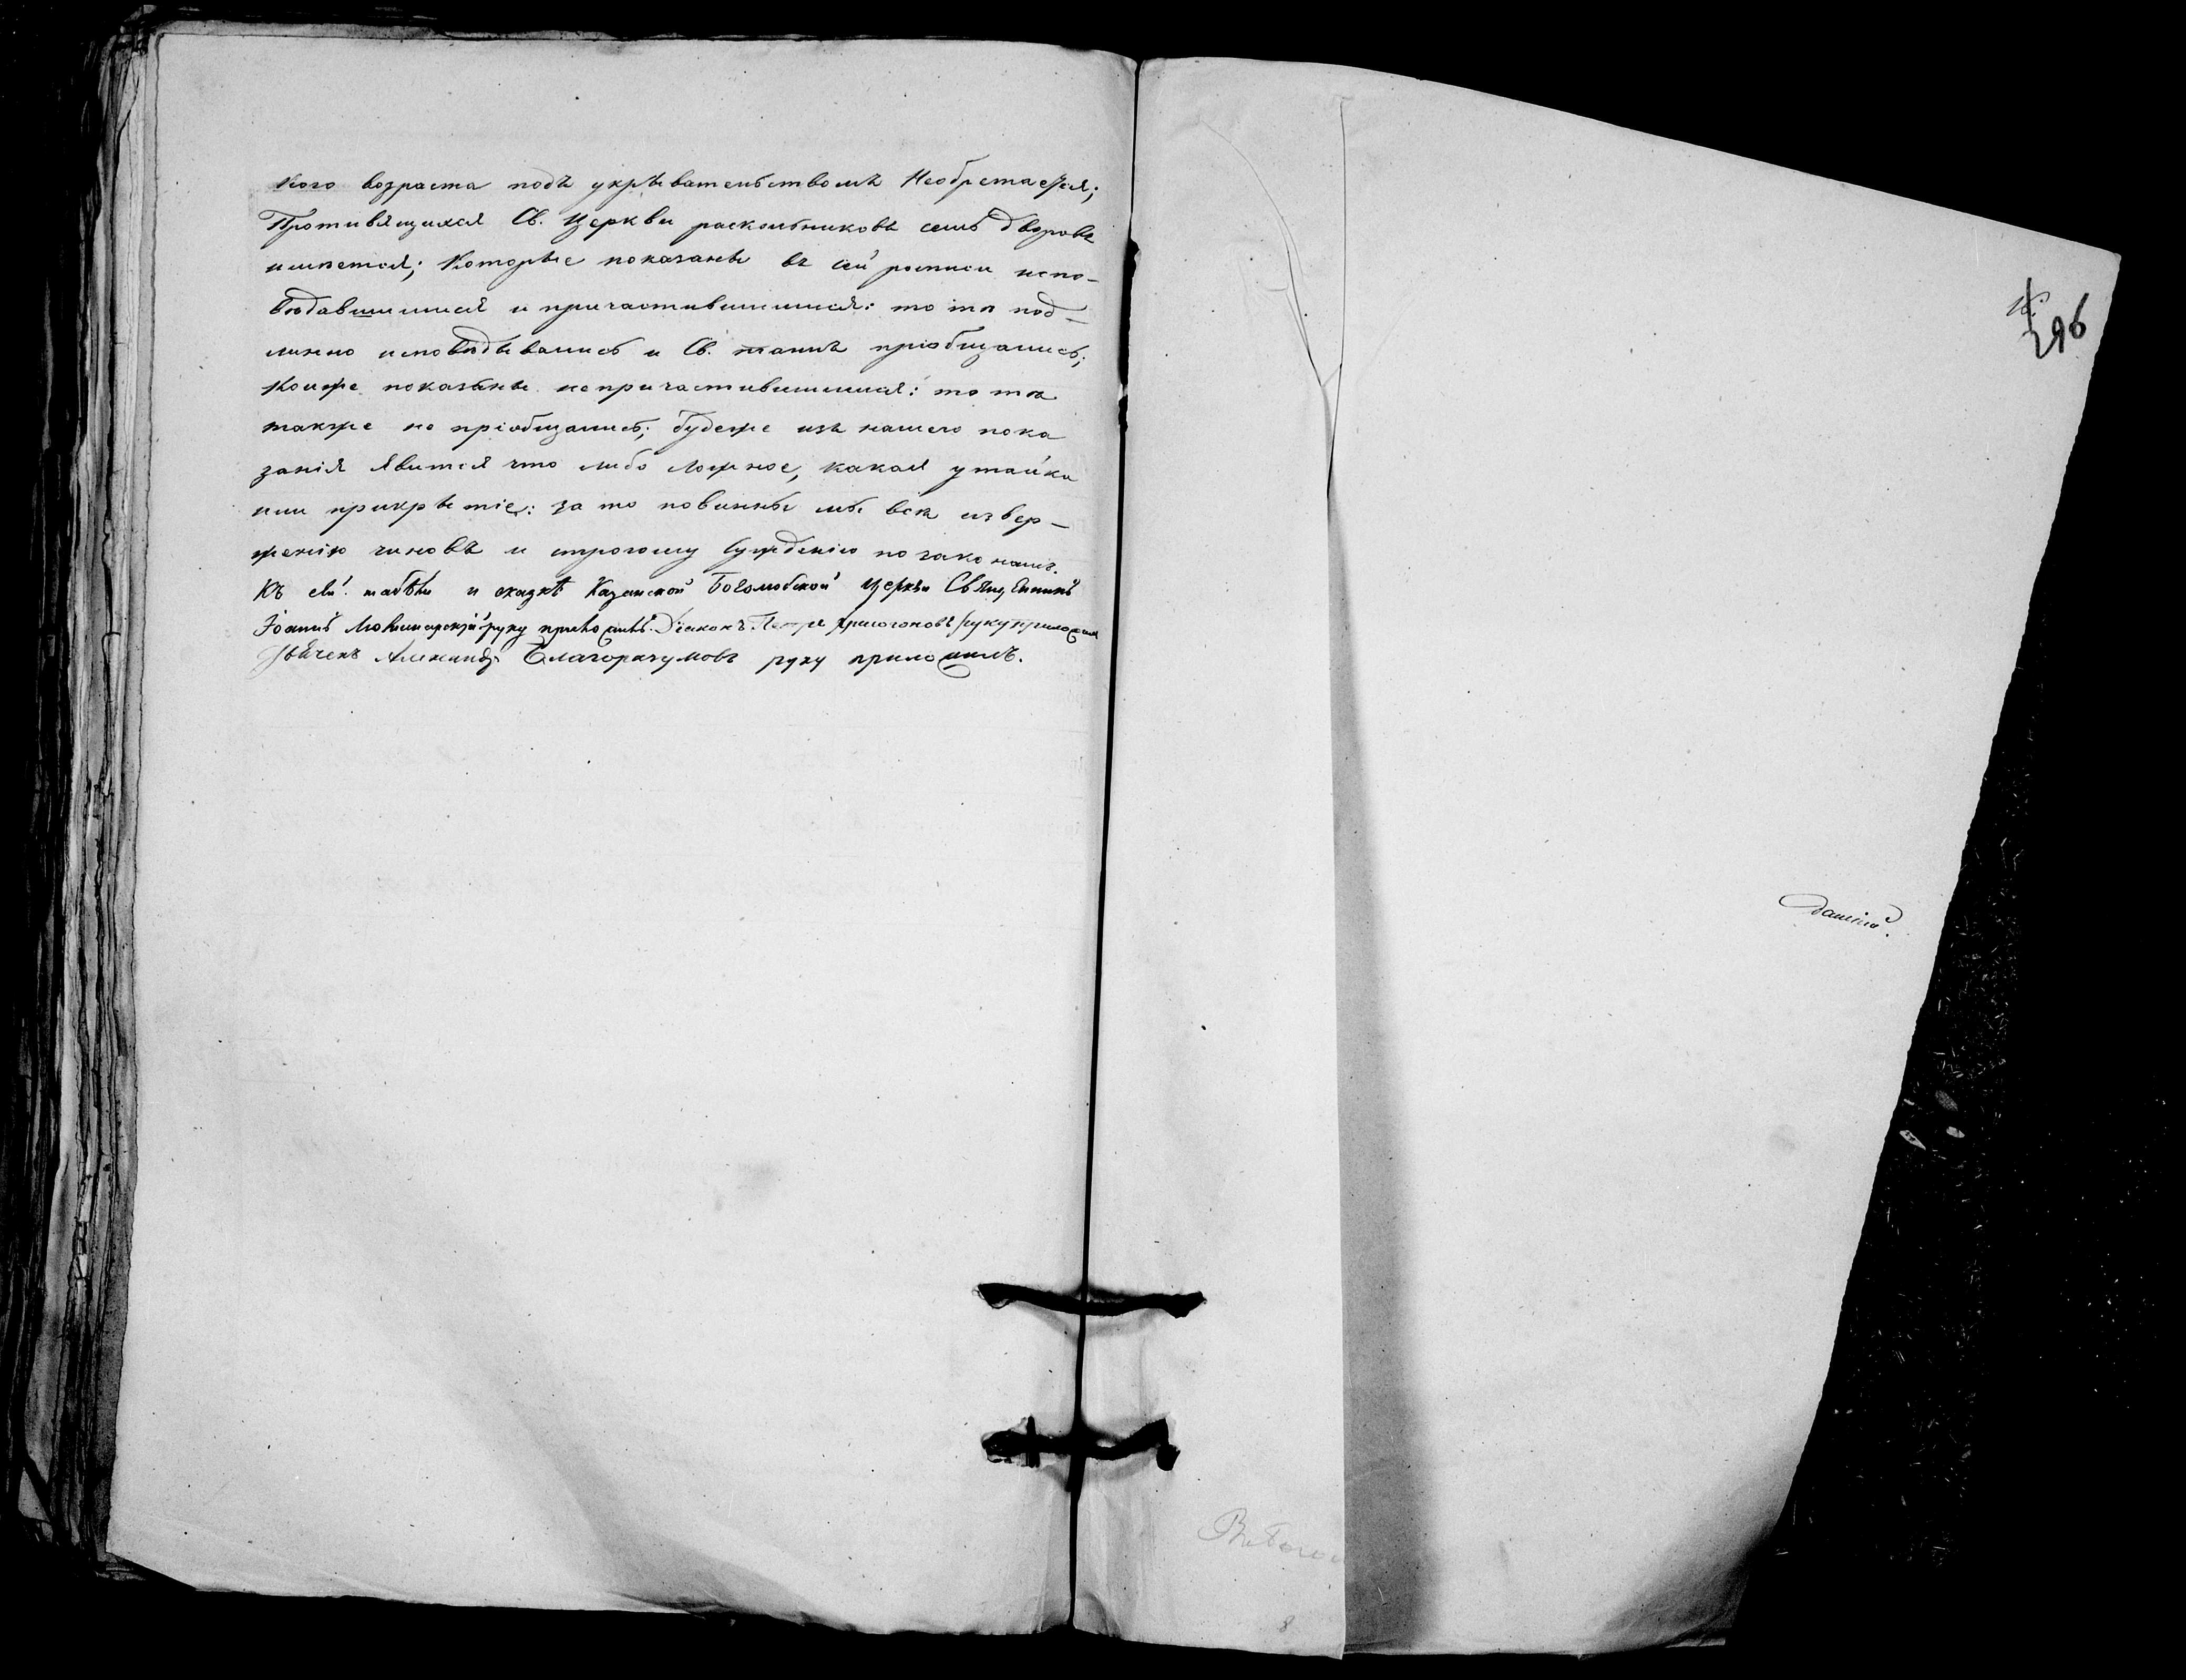 кого возраста подъ укрывательствомъ Необретается;
Противящихся Св. Церкви раскольниковъ семь дворовъ
имѣется; Которые показаны въ сей росписи испо-
вѣдавшимися и причастившимися: то тѣ под-
линно исповѣдывались и Св. таинъ пріобщались;
Коиже показаны непричастившимися: то тѣ
также не пріобщались; будеже изъ нашего пока
занія явится что либо ложное, какая утайка
или прикрытіе: за то повинны мы всѣ извер-
женію чиновъ и строгому Сужденію по законамъ.
Къ сей табѣли и сказкѣ Казанской Боголюбской церкви Священникъ
Іоаннъ руку приложилъ. Діаконъ Петръ руку приложилъ
Александръ Благоразумовъ руку приложилъ.
296
даній.
8